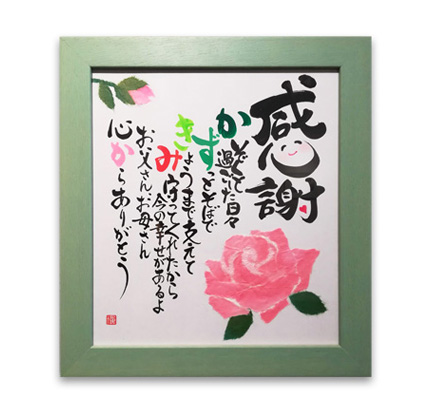 感謝
かぞくで過ごした日々
ずっとそばで
きょうまで支えて
み守ってくれたから
今の幸せがあるよ
お父さんお母さん
心からありがとう